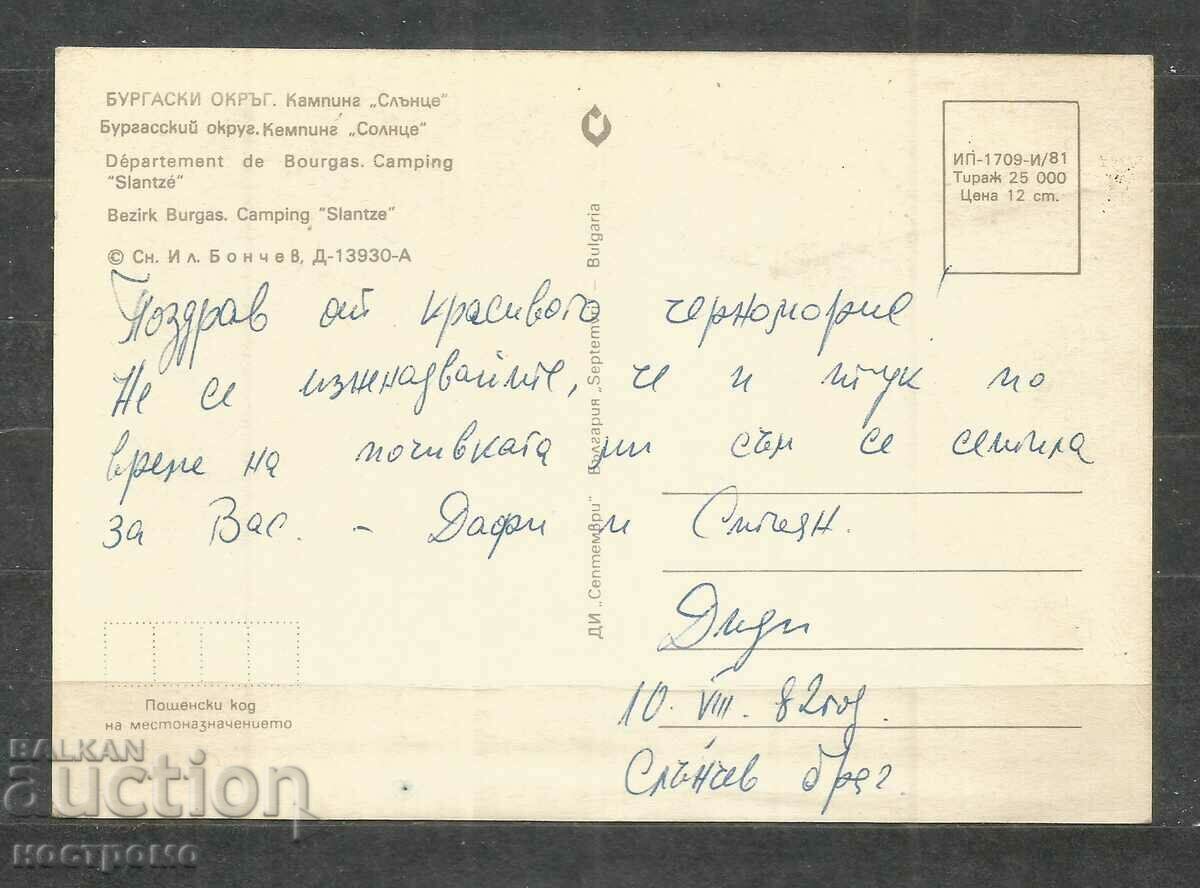 БУРГАСКИ ОКРЪГ. Кампинг „Слънце"
Бургасский округ. Кемпинг „Солнце"
Département de Bourgas. Camping
"Slantzé"
Bezirk Burgas. Camping "Slantze"
© Сн. Ил. Бончев, Д-13930-А
ИП-1709-И/81
Тираж 25 000
Цена 12 ст.
ДИ „Септември" България „Septemvri" – Bulgaria
Поздрав от красивото черноморие!
Не се изненадвайте, че и тук по
време на почивката ми съм се сетила
за Вас. – Дафи и Стоян.
Диди
10. VIII. 82 год.
Слънчев бряг.
Пощенски код
на местоназначението
BALKAN
auction
костромо